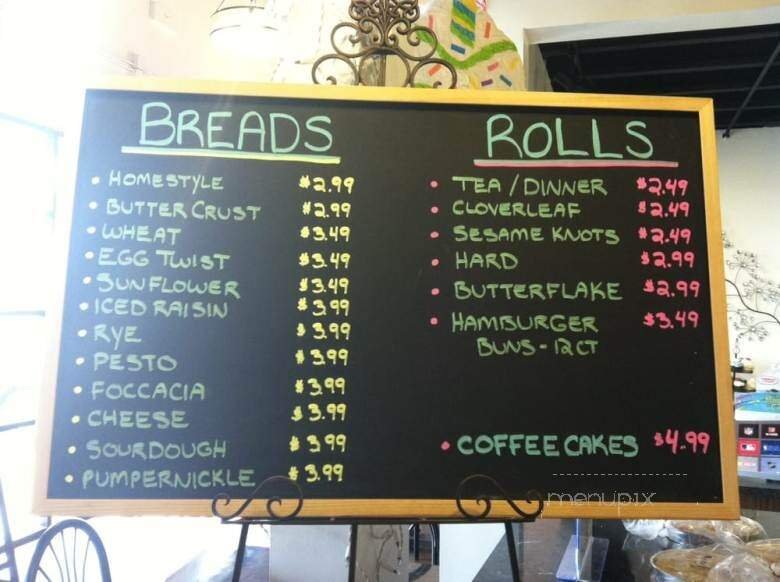 BREADS
• HOMESTYLE $2.99
• BUTTER CRUST $2.99
• WHEAT $3.49
• EGG TWIST $3.49
• SUNFLOWER $3.49
• ICED RAISIN $3.99
• RYE $3.99
• PESTO $3.99
• FOCCACIA $3.99
• CHEESE $3.99
• SOURDOUGH $3.99
• PUMPERNICKLE $3.99
ROLLS
• TEA / DINNER $2.49
• CLOVERLEAF $2.49
• SESAME KNOTS $2.49
• HARD $2.99
• BUTTERFLAKE $2.99
• HAMBURGER $3.49
BUNS - 12 CT
• COFFEE CAKES $4.99
menupix